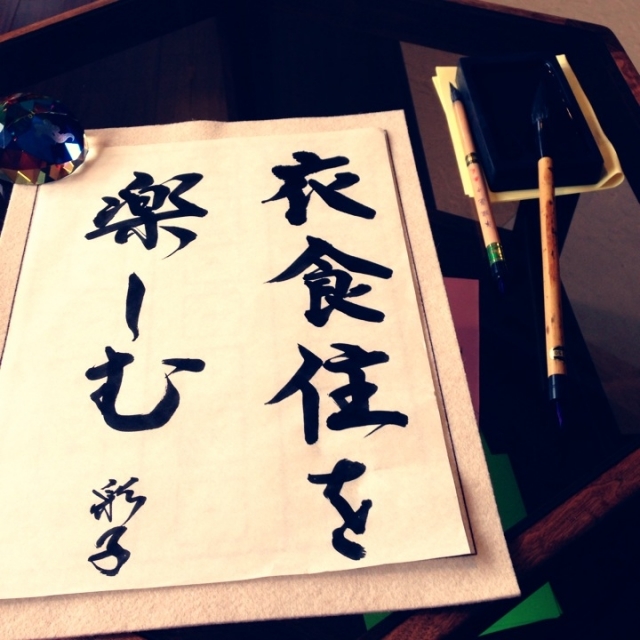 衣食住を
楽しむ
彩子